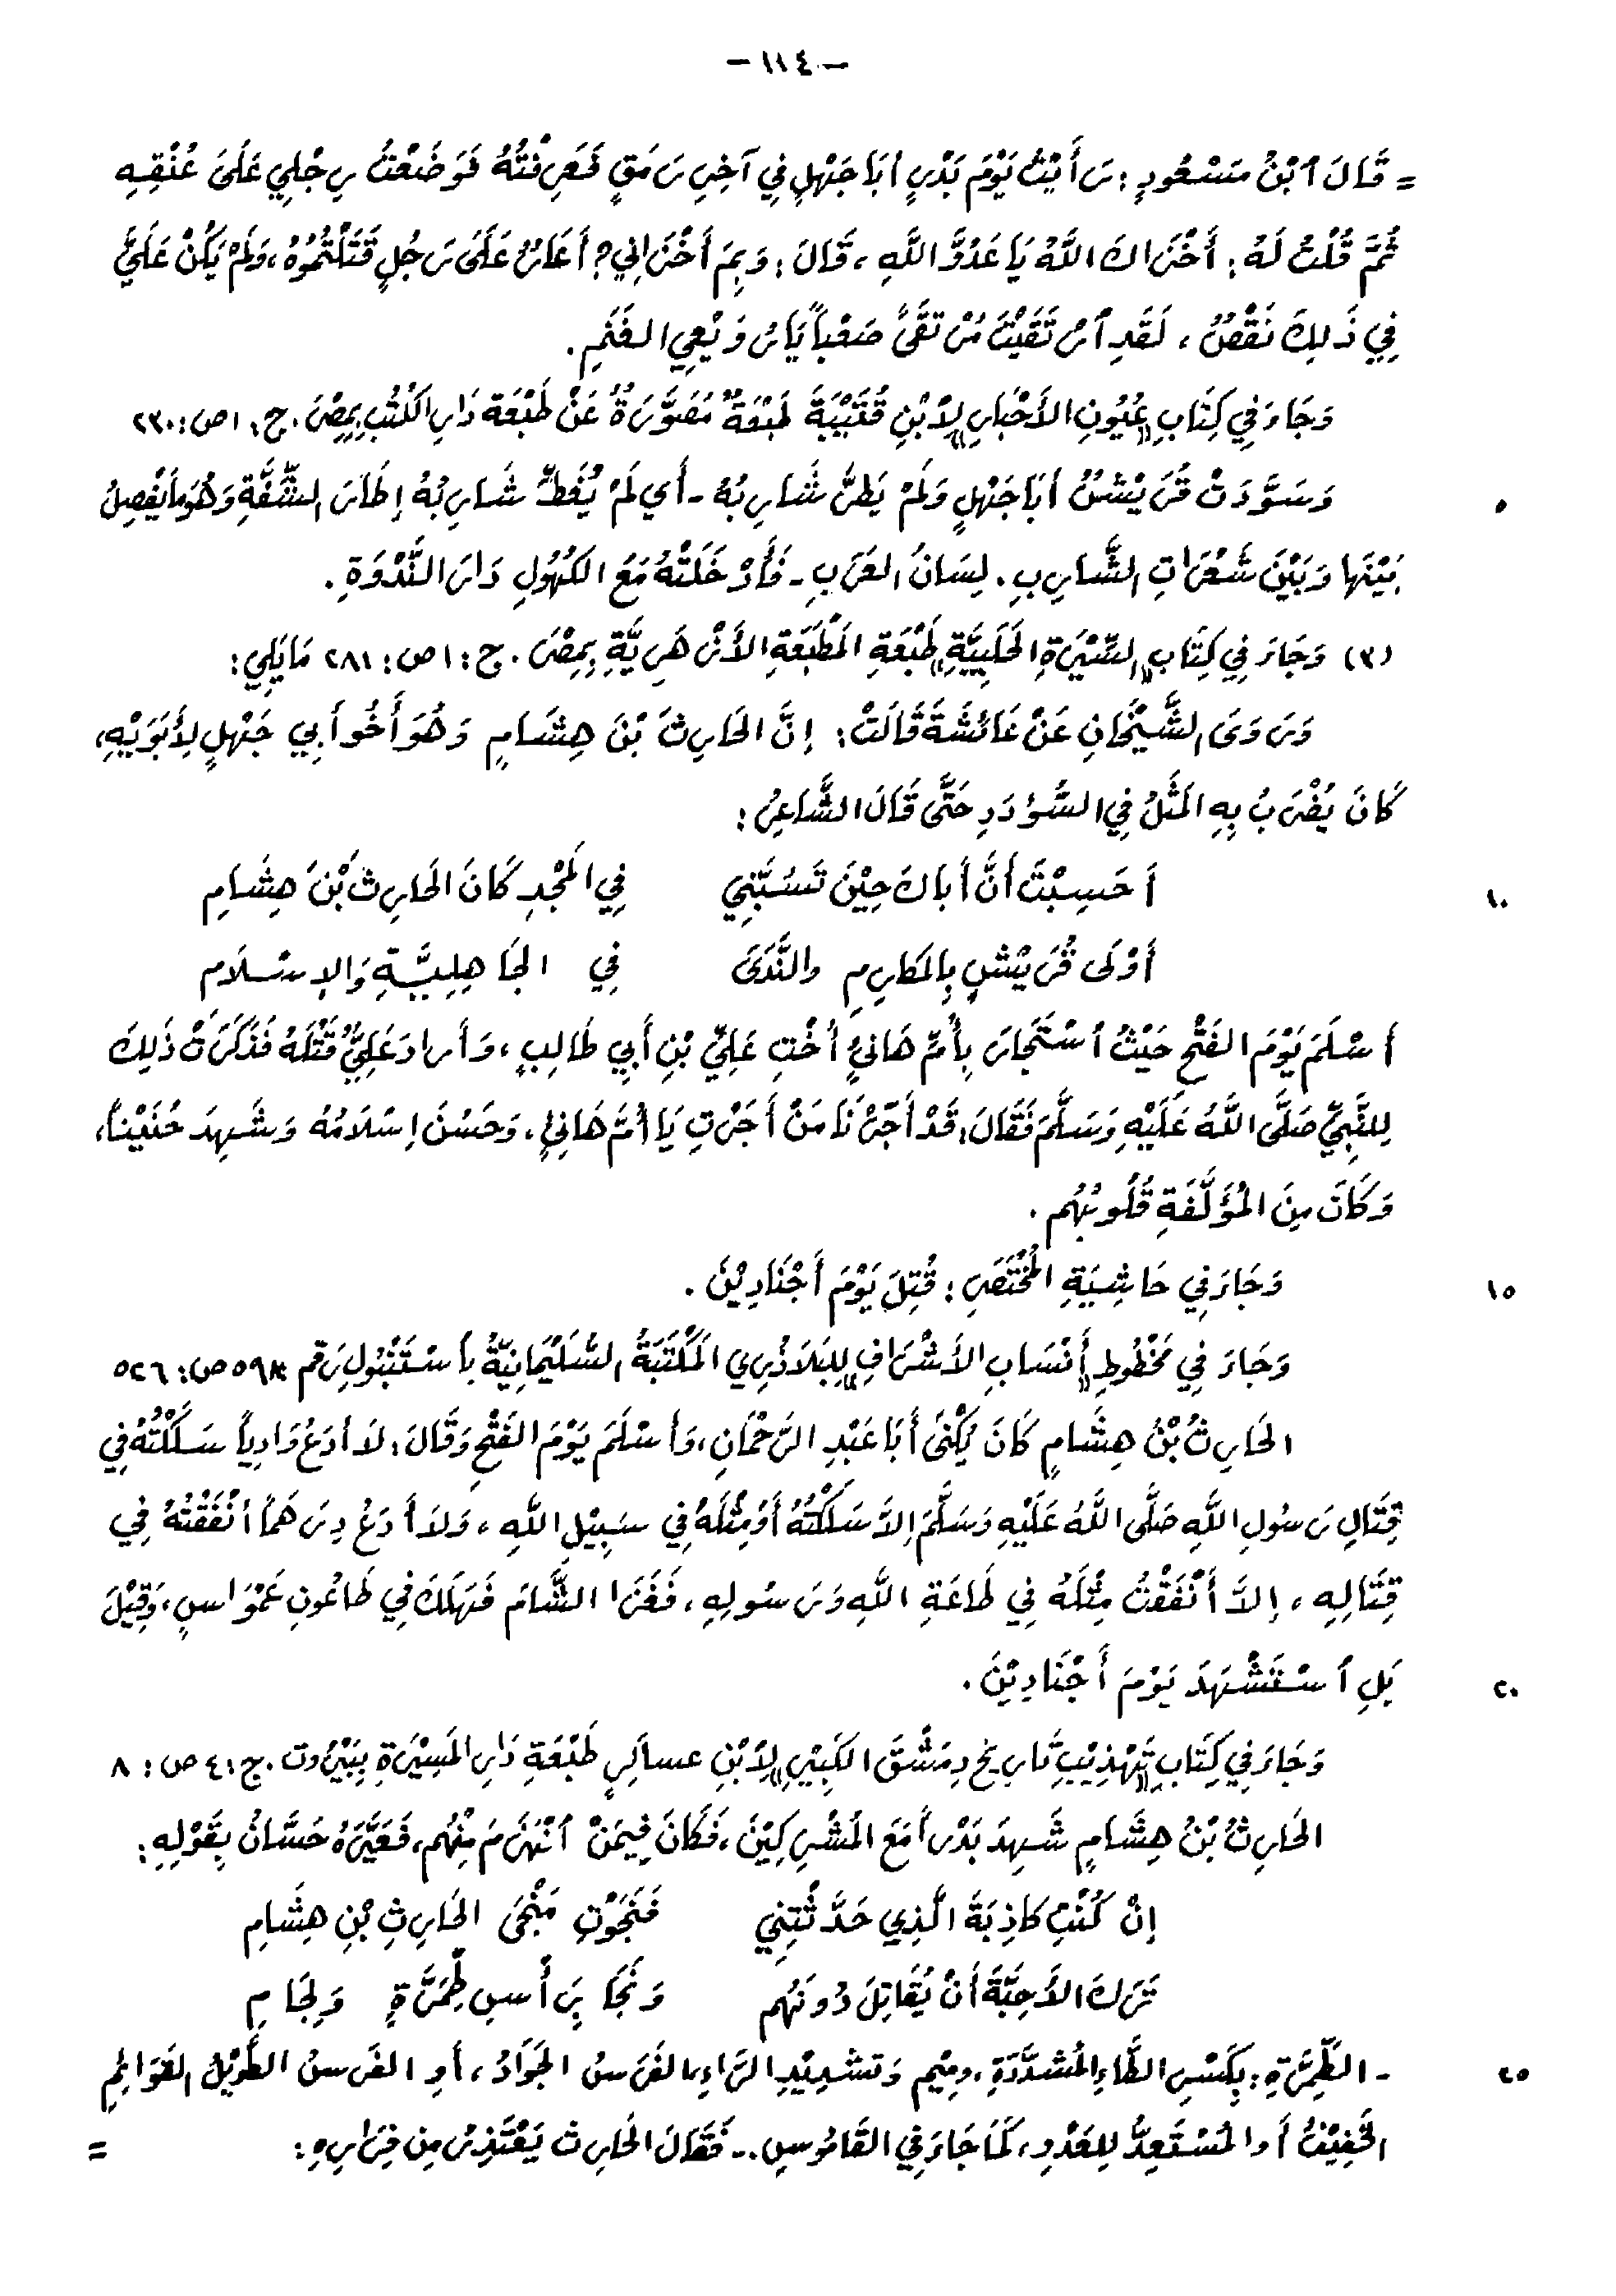 - ١١٤ -
= قَالَ ٱبْنُ مَسْعُودٍ: رَأَيْتُ يَوْمَ بَدْرٍ أَبَا جَهْلٍ فِي آخِرِ رَمَقٍ فَعَرِفْتُهُ فَوَضَعْتُ رِجْلِي عَلَى عُنُقِهِ
ثُمَّ قُلْتُ لَهُ: أَخْزَاكَ اللَّهُ يَا عَدُوَّ اللَّهِ، قَالَ: وَبِمَ أَخْزَانِي؟ أَعَارٌ عَلَى رَجُلٍ قَتَلْتُمُوهُ، وَلَمْ يَكُنْ عَلَيَّ
فِي ذَلِكَ نَقْصٌ، لَقَدِ ٱرْتَقَيْتَ مُرْتَقَىً صَعْبَاً يَا رُوَيْعِي الغَنَمِ.
وَجَاءَ فِي كِتَابِ «عُيُونِ الأَخْبَارِ» لِٱبْنِ قُتَيْبَةَ طَبْعَةٌ مُصَوَّرَةٌ عَنْ طَبْعَة دَارِ الكُتُبِ بِمِصْرَ. ج: ١ ص: ٢٣٠
٥ وَسَوَّدَتْ قُرَيْشٌ أَبَا جَهْلٍ وَلَمْ يَطُرَّ شَارِبُهُ - أَي لَمْ يُغَطِّ شَارِبُهُ إِطَارَ الشَّفَّةِ وَهُوَ مَا يَفْصِلُ
بَيْنَهَا وَبَيْنَ شَعَرَاتِ الشَّارِبِ. لِسَانُ العَرَبِ - فَأُدْخَلَتْهُ مَعَ الكُهُولِ دَارَ النَّدْوَةِ.
(٣) وَجَاءَ فِي كِتَابِ «السِّيْرَةِ الحَلَبِيَّةِ» طَبْعَةِ المَطْبَعَةِ الأَزْهَرِيَّةِ بِمِصْرَ. ج: ١ ص: ٢٨١ مَا يَلِي:
وَرَوَى الشَّيْخَانِ عَنْ عَائِشَةَ قَالَتْ: إِنَّ الحَارِثَ بْنَ هِشَامٍ وَهُوَ أَخُو أَبِي جَهْلٍ لِأَبَوَيْهِ،
كَانَ يُضْرَبُ بِهِ المَثَلُ فِي السُّؤدَدِ حَتَّى قَالَ الشَّاعِرُ:
١٠ أَحَسِبْتَ أَنَّ أَبَاكَ حِيْنَ تَسُبَّنِي فِي المَجْدِ كَانَ الحَارِثَ بْنَ هِشَامِ
أَوْلَى قُرَيْشٍ بِالمَكَارِمِ والنَّدَى فِي الجَاهِلِيَّةِ وَالإِسْلَامِ
أَسْلَمَ يَوْمَ الفَتْحِ حَيْثُ ٱسْتَجَارَ بِأُمِّ هَانِئٍ أُخْتِ عَلِيِّ بْنِ أَبِي طَالِبٍ، وَأَرادَ عَلِيٌّ قَتْلَهُ فَذَكَرَتْ ذَلِكَ
لِلنَّبِيِّ صَلَّى اللَّهُ عَلَيْهِ وَسَلَّمَ فَقَالَ: قَدْ أَجَرْنَا مَنْ أَجَرْتِ يَا أُمَّ هَانِئٍ، وَحَسُنَ إِسْلَامُهُ وَشَهِدَ حُنَيْناً،
وَكَانَ مِنَ المُؤَلَّفَةِ قُلُوبُهُم.
١٥ وَجَاءَ فِي حَاشِيَةِ المُخْتَصَرِ: قُتِلَ يَوْمَ أَجْنَادِيْنَ.
وَجَاءَ فِي مَخْطُوطِ «أَنْسَابِ الأَشْرَافِ» لِلبَلَاذُرِي المَكْتَبَةُ السُّلَيْمَانِيَّةُ بِأَسْتَنْبُولِ رَقم ٥٩٨ ص: ٥٢٦
الحَارِثُ بْنُ هِشَامٍ كَانَ يُكْنَى أَبَا عَبْدِ الرَّحْمَانِ، وَأَسْلَمَ يَوْمَ الفَتْحِ وَقَالَ: لَا أَدَعُ وَادِياً سَلَكْتُهُ فِي
قِتَالِ رَسُولِ اللَّهِ صَلَّى اللَّهُ عَلَيْهِ وَسَلَّمَ إِلاَّ سَلَكْتُهُ أَوْ مِثْلَهُ فِي سَبِيْلِ اللَّهِ، وَلَا أَدَعُ دِرَهَماً أَنْفَقْتُهُ فِي
قِتَالِهِ، إِلاَّ أَنْفَقْتُ مِثْلَهُ فِي طَاعَةِ اللَّهِ وَرَسُولِهِ، فَغَزَا الشَّامَ فَهَلَكَ فِي طَاعُونِ عَمْوَاسٍ، وَقِيْلَ
٢٠ بَلِ ٱسْتَشْهَدَ يَوْمَ أَجْنَادِيْنَ.
وَجَاءَ فِي كِتَابِ «تَهْذِيْبِ تَارِيخِ دِمَشْقَ الكَبِيْرِ» لِٱبْنِ عساكِرٍ طَبْعَةِ دَارِ المَسِيْرَةِ بِبَيْرُوت. ج: ٤ ص: ٨
الحَارِثُ بْنُ هِشَامٍ شَهِدَ بَدْراً مَعَ المُشْرِكِيْنَ، فَكَانَ فِيمَنْ ٱنْهَزَمَ مِنْهُم، فَعَيَّرَهُ حَسَّانُ بِقَوْلِهِ:
إِنْ كُنْتِ كَاذِبَةَ الَّذِي حَدَّثْتِنِي فَنَجَوْتِ مَنْجَى الحَارِثِ بْنِ هِشَامِ
تَرَكَ الأَحِبَّةَ أَنْ يُقَاتِلَ دُونَهُم وَنَجَا بِرَأْسِ طِمِرَّةٍ وَلِجَامِ
٢٥ - الطِّمِرَّةِ: بِكَسْرِ الطَّاءِ المُشَدَّدَةِ، وميْم وَتشدِيْدِ الرَّاءِ، الفَرَسُ الجَوَادُ، أَوِ الفَرَسُ الطَّوِيْلُ القَوَائِمِ
الخَفِيْفُ أَوالمُسْتَعِدُّ لِلعَدْوِ، كَمَا جَاءَ فِي القَامُوسِ. - فَقَالَ الحَارِث يَعْتَذِرُ مِن فِرَارِهِ: =